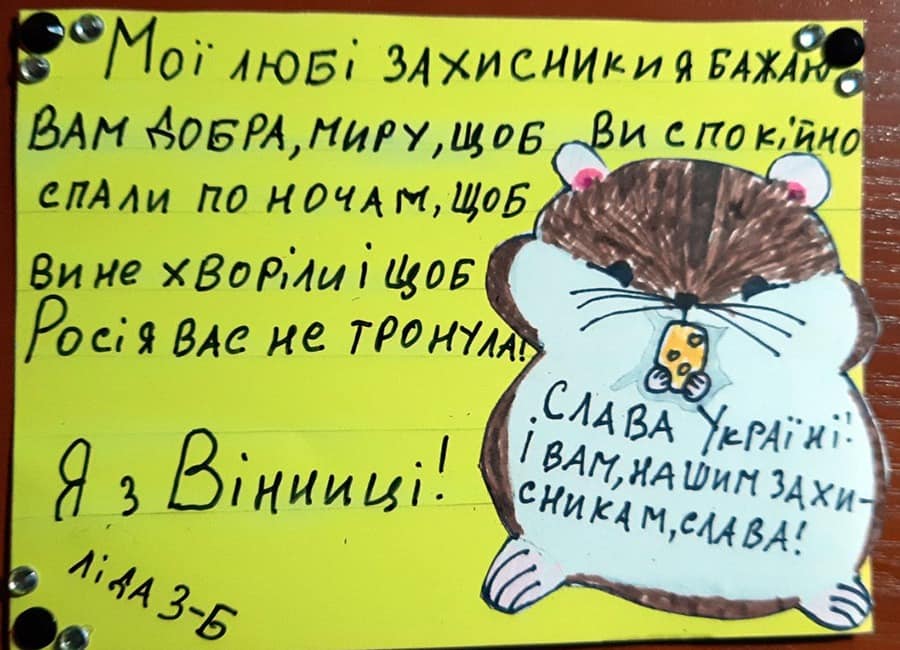 Мої любі захисники я бажаю
вам добра, миру, щоб ви спокійно
спали по ночам, щоб
ви не хворіли і щоб
Росія вас не тронула!
Я з Вінниці!
Ліда 3-Б
Слава Україні!
І вам, нашим захи-
сникам, слава!